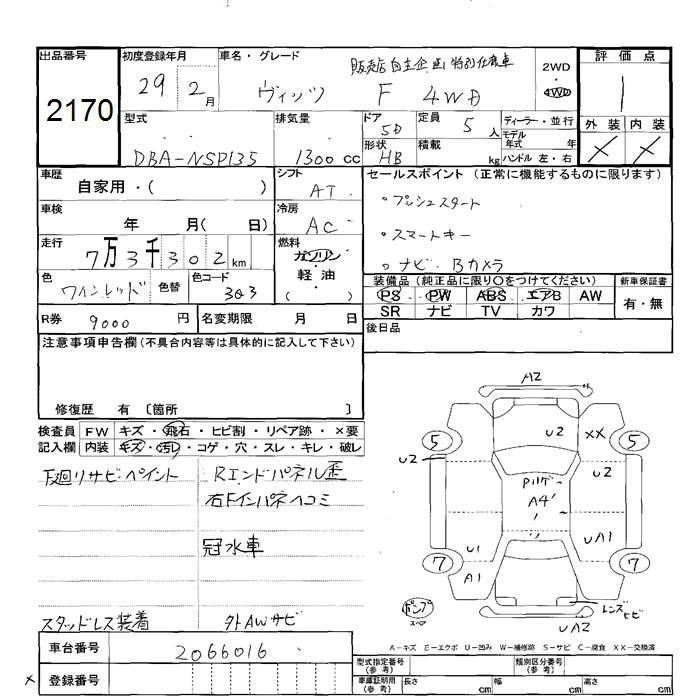 出品番号
2170
初度登録年月
29 2月
車名・グレード
販売店自主企画特別仕様車
ヴィッツ F 4WD
2WD
・
4WD
評価点
1
外装 内装
× ×
型式
DBA-NSP135
排気量
1300 cc
ドア
5D
定員
5人
形状
HB
積載
kg
ディーラー・並行
モデル
年式 年
ハンドル 左・右
車歴
自家用・( )
シフト
AT
車検
年 月( 日)
冷房
AC
走行
7万3千302km
燃料
ガソリン
軽油
( )
色
ワインレッド
色替
色コード
3Q3
R券
9000円
名変期限 月 日
セールスポイント(正常に機能するものに限ります)
・プッシュスタート
・スマートキー
・ナビ・Bカメラ
装備品(純正品に限り○をつけてください)
PS PW ABS エアB AW
SR ナビ TV カワ
新車保証書
有・無
後日品
注意事項申告欄(不具合内容等は具体的に記入して下さい)
修復歴 有 〔箇所 〕
検査員
記入欄
FW キズ・飛石・ヒビ割・リペア跡・×要
内装 キズ・汚レ・コゲ・穴・スレ・キレ・破レ
下廻りサビ・ペイント
Rエンドパネル歪
右Fインパネヘコミ
冠水車
スタッドレス装着
外AWサビ
A2
5
U2
XX
5
U2
U2
Pハゲ
A4
U1
UA1
7
A1
7
ポンプ
スペア
レンズヒビ
UA2
A-キズ E-エクボ U-凹み W-補修跡 S-サビ C-腐食 XX-交換済
車台番号
2066016
× 登録番号
型式指定番号
(参考)
類別区分番号
(参考)
車庫証明用
(参考)
長さ cm 幅 cm 高さ cm